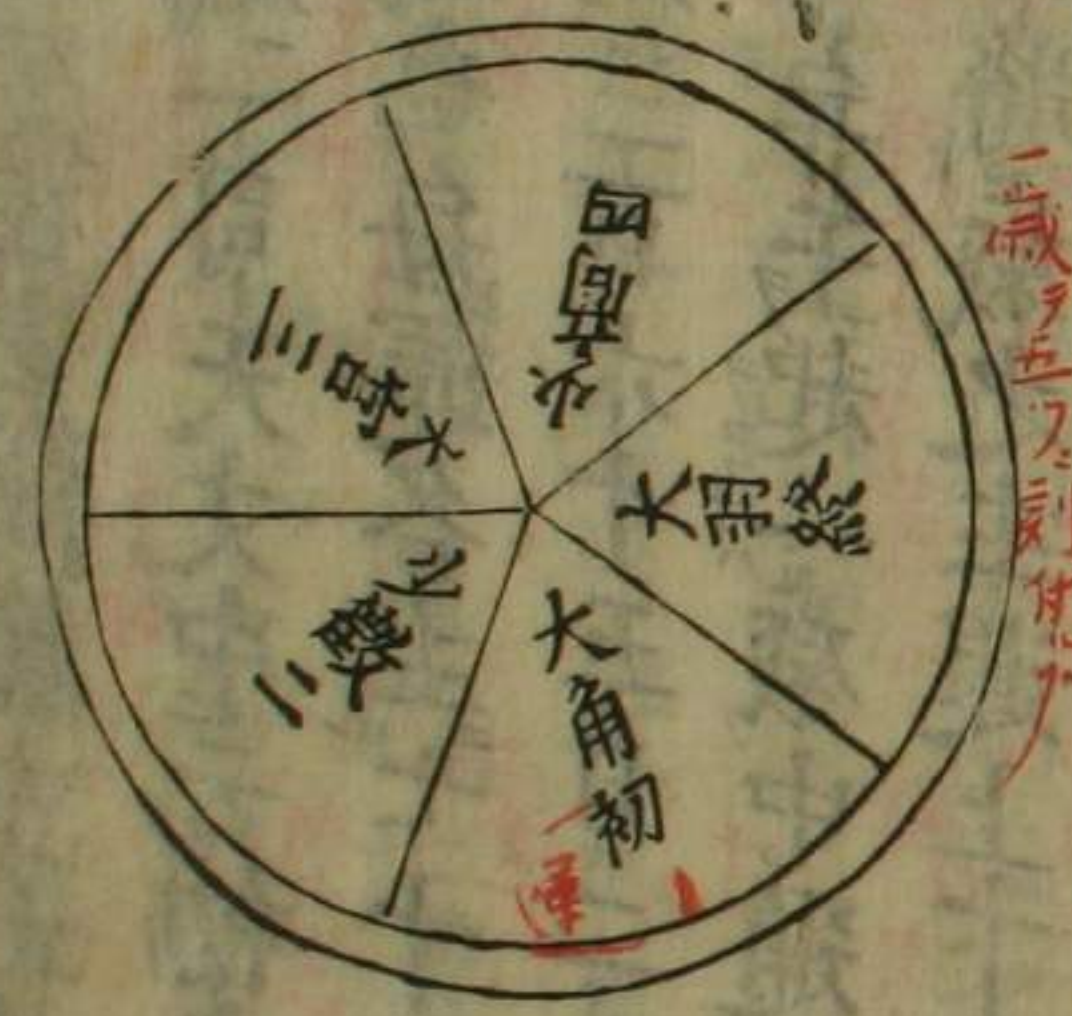 大角初
運
少徴二
大宮三
少商四
大羽終
一歳ヲ五ツニ割